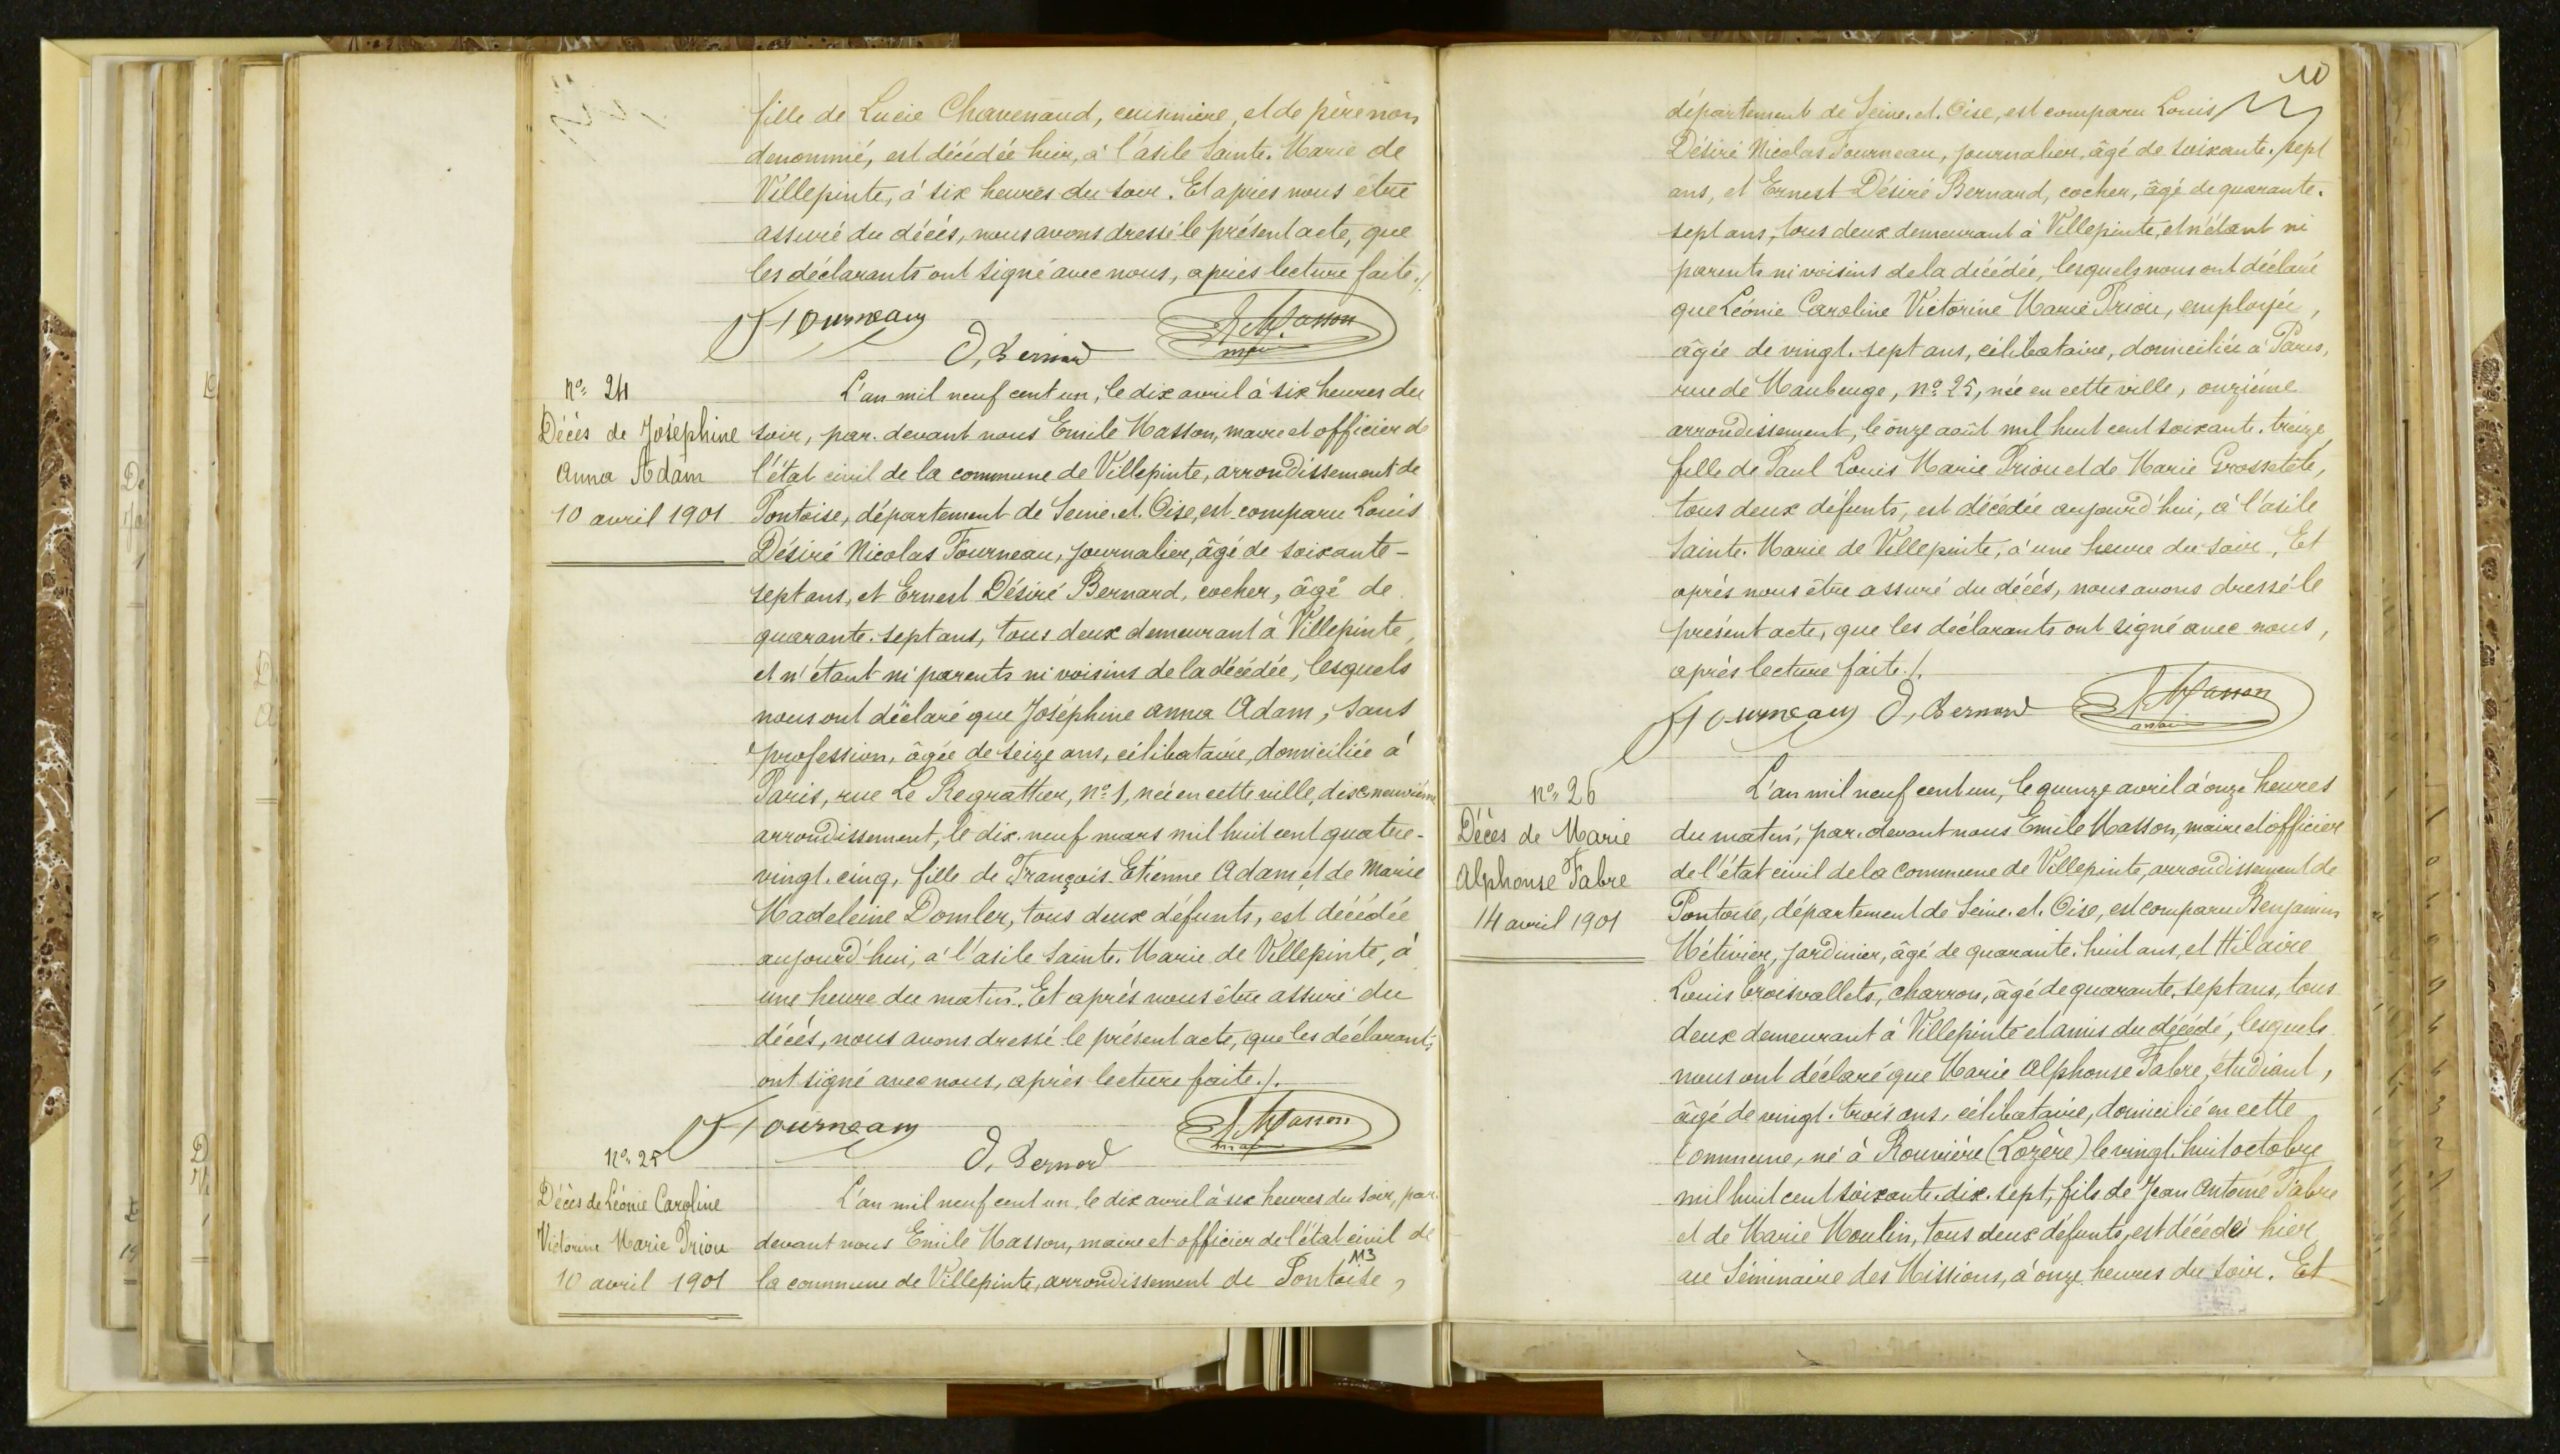 fille de Lucie Chavenaud, cuisinière, et de père non
denommé, est décédée hier, à l'asile Sainte. Marie de
Villepinte, à six heures du soir. Et après nous être
assuré du décès, nous avons dressé le présent acte, que
les déclarants ont signé avec nous, après lecture faite./.
Fourneau
D. Bernard
E. Masson
maire
No. 24
Décès de Joséphine
Anna Adam
10 avril 1901
L'an mil neuf cent un, le dix avril à six heures du
soir, par. devant nous Emile Masson, maire et officier de
l'état civil de la commune de Villepinte, arrondissement de
Pontoise, département de Seine. et. Oise, est comparu Louis
Désiré Nicolas Fourneau, journalier, âgé de soixante-
sept ans, et Ernest Désiré Bernard, cocher, âgé de
quarante. sept ans, tous deux demeurant à Villepinte,
et n'étant ni parents ni voisins de la décédée, lesquels
nous ont déclaré que Joséphine Anna Adam, sans
profession, âgée de seize ans, célibataire, domiciliée à
Paris, rue Le Regrattier, no. 1, née en cette ville, dix neuvième
arrondissement, le dix. neuf mars mil huit cent quatre-
vingt. cinq, fille de François-Etienne Adam et de Marie
Madeleine Domler, tous deux défunts, est décédée
aujourd'hui, à l'asile Sainte. Marie de Villepinte, à
une heure du matin. Et après nous être assuré du
décès, nous avons dressé le présent acte, que les déclarants
ont signé avec nous, après lecture faite./.
Fourneau
D. Bernard
E. Masson
maire
No. 25
Décès de Léonie Caroline
Victorine Marie Priou
10 avril 1901
L'an mil neuf cent un, le dix avril à six heures du soir, par.
devant nous Emile Masson, maire et officier de l'état civil de
la commune de Villepinte, arrondissement de Pontoise,
113
10
département de Seine. et. Oise, est comparu Louis
Désiré Nicolas Fourneau, journalier, âgé de soixante. sept
ans, et Ernest Désiré Bernard, cocher, âgé de quarante.
sept ans, tous deux demeurant à Villepinte, et n'étant ni
parents ni voisins de la décédée, lesquels nous ont déclaré
que Léonie Caroline Victorine Marie Priou, employée,
âgée de vingt. sept ans, célibataire, domiciliée à Paris,
rue de Maubeuge, no. 25, née en cette ville, onzième
arrondissement, le onze août mil huit cent soixante. treize,
fille de Paul Louis Marie Priou et de Marie Grossetete,
tous deux défunts, est décédée aujourd'hui, à l'asile
Sainte. Marie de Villepinte, à une heure du soir. Et
après nous être assuré du décès, nous avons dressé le
présent acte, que les déclarants ont signé avec nous,
après lecture faite./.
Fourneau D. Bernard E. Masson
maire
No. 26
Décès de Marie
Alphonse Fabre
14 avril 1901
L'an mil neuf cent un, le quinze avril à onze heures
du matin, par. devant nous Emile Masson, maire et officier
de l'état civil de la commune de Villepinte, arrondissement de
Pontoise, département de Seine. et. Oise, est comparu Benjamin
Métivier, jardinier, âgé de quarante. huit ans, et Hilaire
Louis Croisvallets, charron, âgé de quarante. sept ans, tous
deux demeurant à Villepinte et amis du décédé, lesquels
nous ont déclaré que Marie Alphonse Fabre, étudiant,
âgé de vingt. trois ans, célibataire, domicilié en cette
commune, né à Rouvière (Lozère) le vingt. huit octobre
mil huit cent soixante. dix. sept, fils de Jean Antoine Fabre
et de Marie Moulin, tous deux défunts, est décédé hier
au Séminaire des Missions, à onze heures du soir. Et